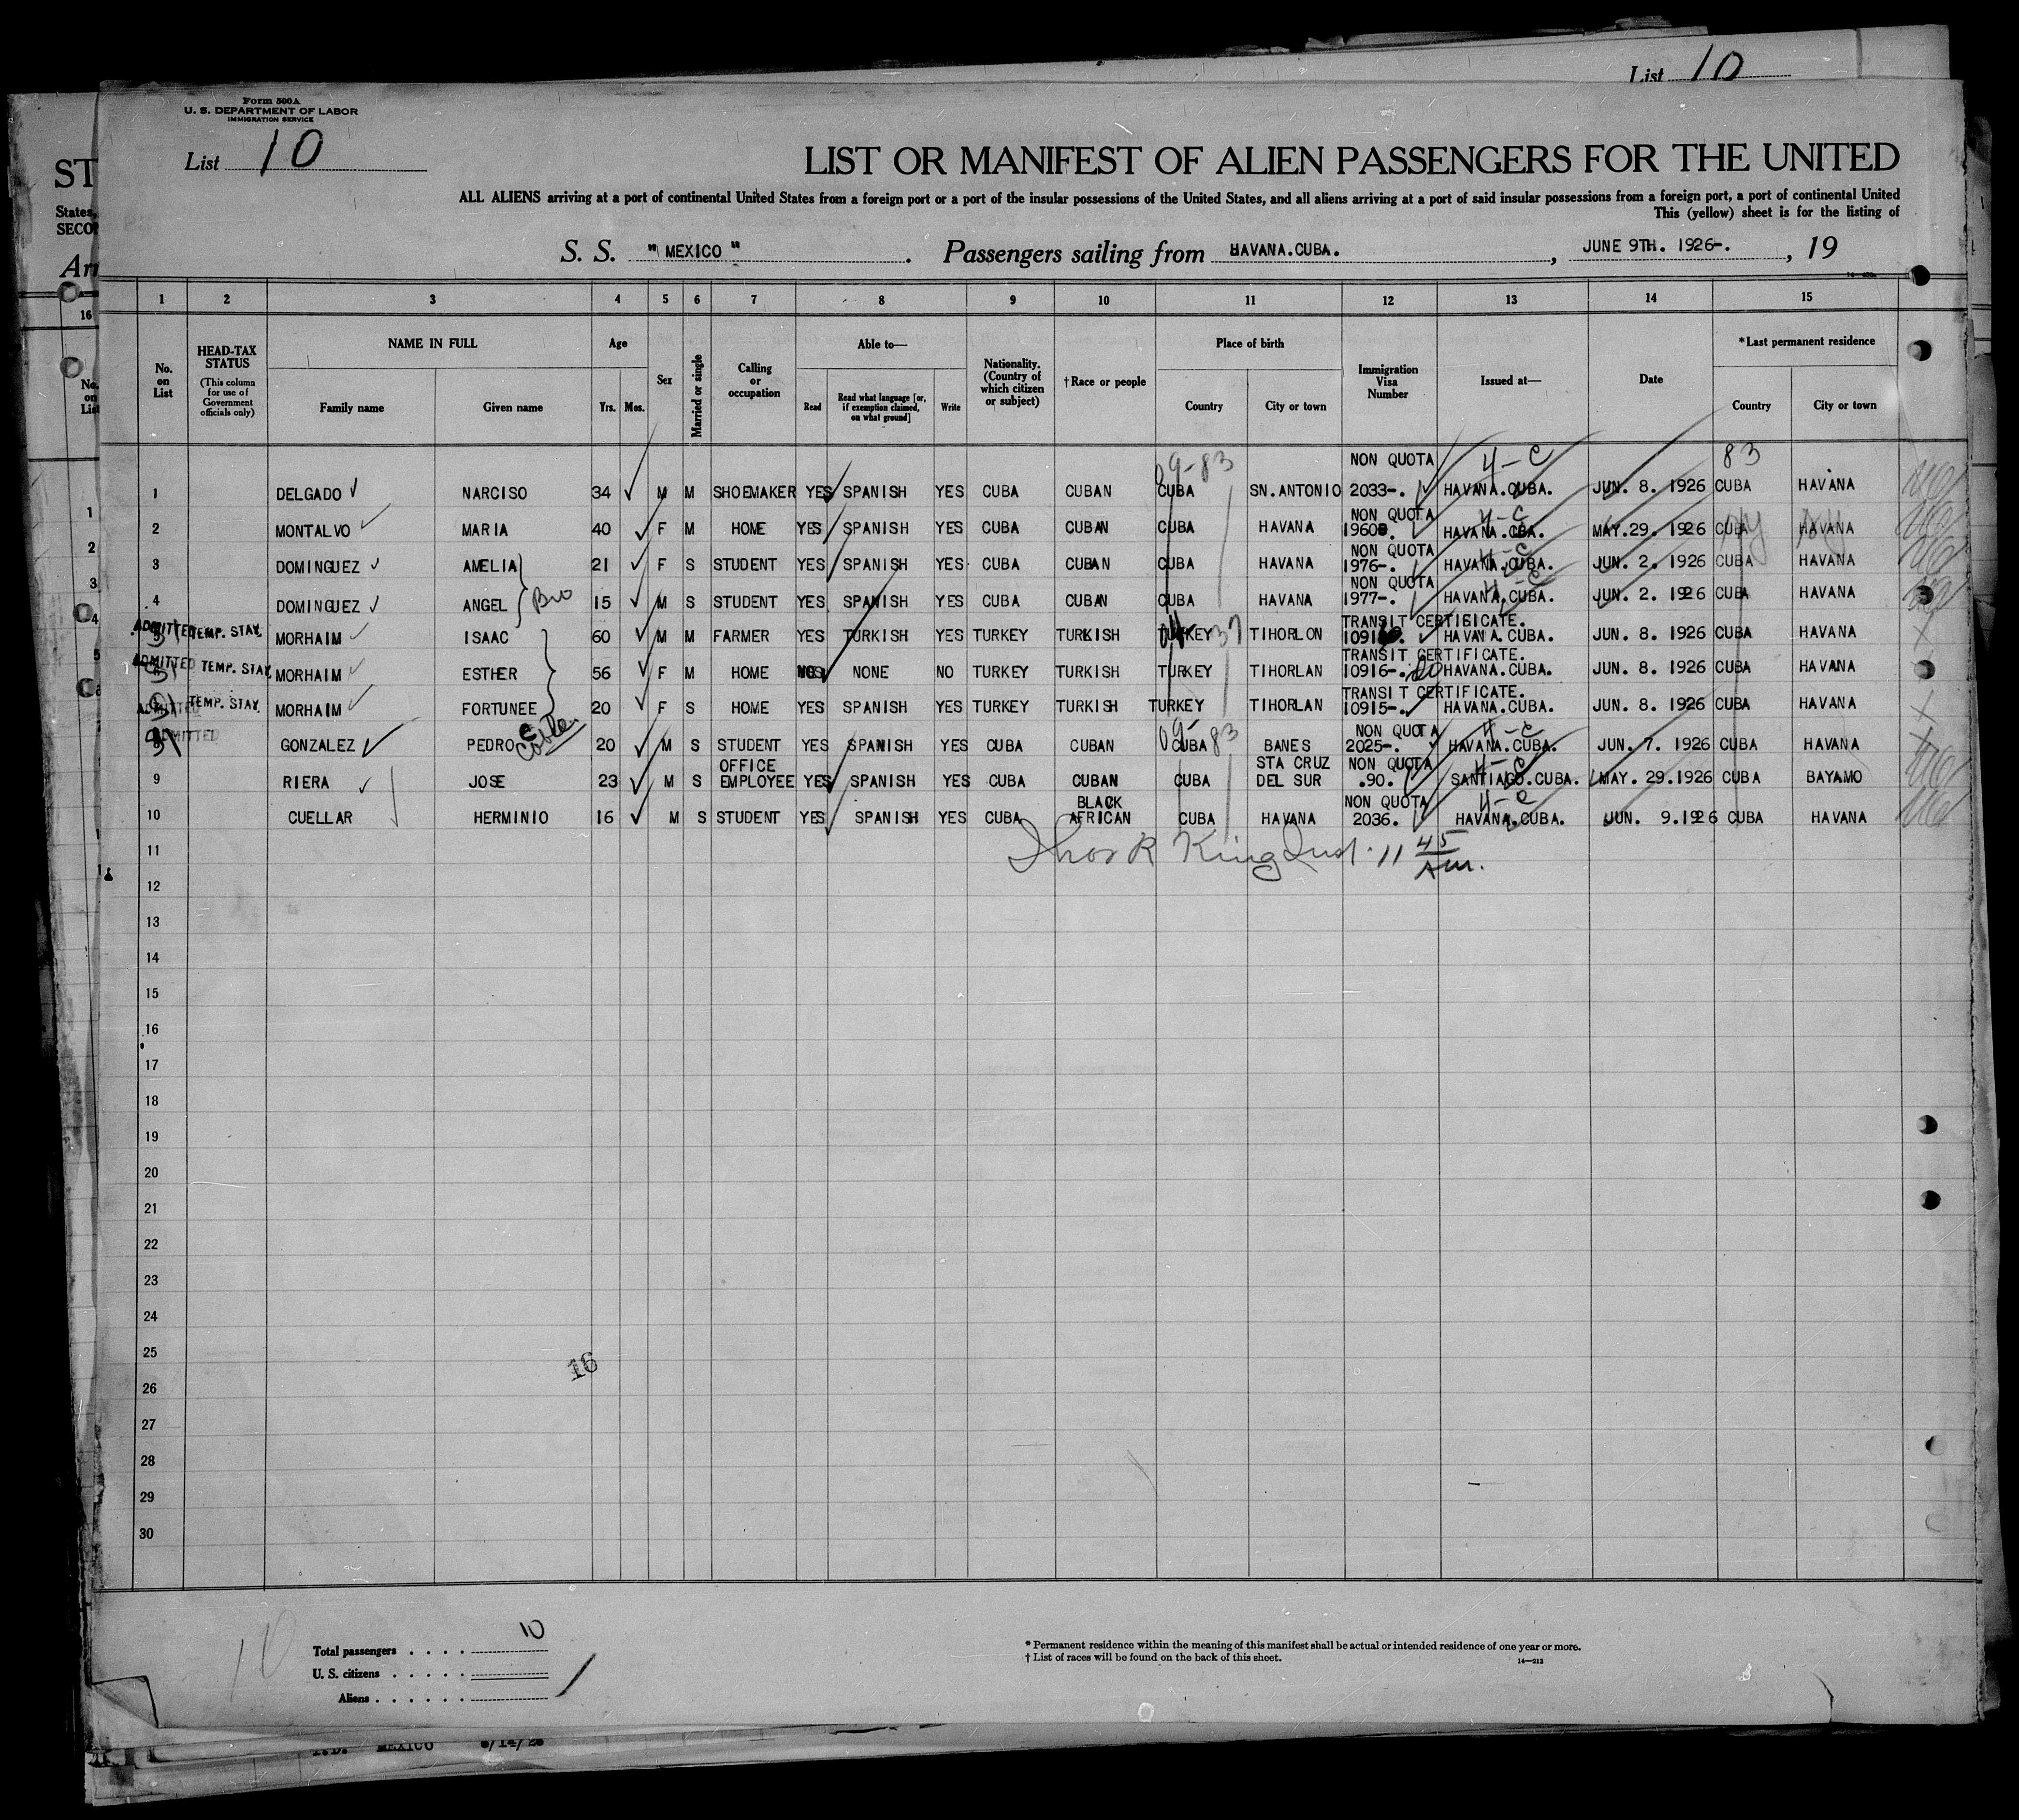 List 10
Form 500A
U. S. DEPARTMENT OF LABOR
IMMIGRATION SERVICE
List 10
LIST OR MANIFEST OF ALIEN PASSENGERS FOR THE UNITED
ST
ALL ALIENS arriving at a port of continental United States from a foreign port or a port of the insular possessions of the United States, and all aliens arriving at a port of said insular possessions from a foreign port, a port of continental United
States,
This (yellow) sheet is for the listing of
S. S. "MEXICO". Passengers sailing from HAVANA.CUBA., JUNE 9TH. 1926-., 19
1 2 3 4 5 6 7 8 9 10 11 12 13 14 15
16
No. on List
HEAD-TAX STATUS
(This column for use of Government officials only)
NAME IN FULL
Family name Given name
Age
Yrs. Mos.
Sex
Married or single
Calling or occupation
Able to—
Read
Read what language [or, if exemption claimed, on what ground]
Write
Nationality. (Country of which citizen or subject)
† Race or people
Place of birth
Country City or town
Immigration Visa Number
Issued at—
Date
* Last permanent residence
Country City or town
09-83 NON QUOTA 4-C 83
1 DELGADO NARCISO 34 M M SHOEMAKER YES SPANISH YES CUBA CUBAN CUBA SN.ANTONIO 2033-. HAVANA.CUBA. JUN. 8. 1926 CUBA HAVANA
NON QUOTA 4-C
2 MONTALVO MARIA 40 F M HOME YES SPANISH YES CUBA CUBAN CUBA HAVANA 1960. HAVANA.CBA. MAY.29. 1926 CUBA HAVANA
NON QUOTA 4-C
3 DOMINGUEZ AMELIA 21 F S STUDENT YES SPANISH YES CUBA CUBAN CUBA HAVANA 1976-. HAVANA.CUBA. JUN. 2. 1926 CUBA HAVANA
Bro NON QUOTA 4-C
4 DOMINGUEZ ANGEL 15 M S STUDENT YES SPANISH YES CUBA CUBAN CUBA HAVANA 1977-. HAVANA.CUBA. JUN. 2. 1926 CUBA HAVANA
TRANSIT CERTIGICATE.
ADMITTED TEMP. STAY. MORHAIM ISAAC 60 M M FARMER YES TURKISH YES TURKEY TURKISH TURKEY 37 TIHORLON 1091 HAVANA.CUBA. JUN. 8. 1926 CUBA HAVANA
TRANSIT CERTIFICATE.
ADMITTED TEMP. STAY. MORHAIM ESTHER 56 F M HOME NONE NO TURKEY TURKISH TURKEY TIHORLAN 10916-. HAVANA.CUBA. JUN. 8. 1926 CUBA HAVANA
TRANSIT CERTIFICATE.
ADMITTED TEMP. STAY. MORHAIM FORTUNEE 20 F S HOME YES SPANISH YES TURKEY TURKISH TURKEY TIHORLAN 10915-. HAVANA.CUBA. JUN. 8. 1926 CUBA HAVANA
09-83 NON QUOTA 4-C
ADMITTED GONZALEZ PEDRO 20 M S STUDENT YES SPANISH YES CUBA CUBAN CUBA BANES 2025-. HAVANA.CUBA. JUN. 7. 1926 CUBA HAVANA
OFFICE STA CRUZ NON QUOTA 4-C
9 RIERA JOSE 23 M S EMPLOYEE YES SPANISH YES CUBA CUBAN CUBA DEL SUR .90. SANTIAGO.CUBA. MAY. 29.1926 CUBA BAYAMO
BLACK NON QUOTA 4-C
10 CUELLAR HERMINIO 16 M S STUDENT YES SPANISH YES CUBA AFRICAN CUBA HAVANA 2036. HAVANA.CUBA. JUN. 9.1926 CUBA HAVANA
11 Thos R King Insl. 11 45 Am.
12
13
14
15
16
17
18
19
20
21
22
23
24
25
16
26
27
28
29
30
Total passengers . . . . 10
U. S. citizens . . . . .
Aliens . . . . . .
* Permanent residence within the meaning of this manifest shall be actual or intended residence of one year or more.
† List of races will be found on the back of this sheet.
14—213
10
MEXICO